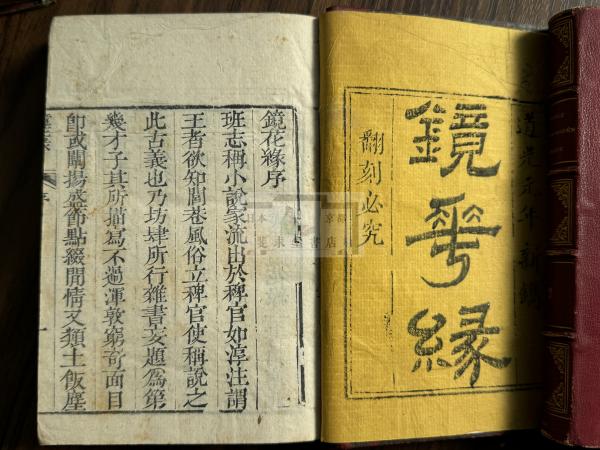 道光元年新鐫
鏡花緣
翻刻必究
鏡花緣序
班志稱小說家流出於稗官如淳注謂
王者欲知閭巷風俗立稗官使稱說之
此古義也乃坊肆所行雜書妄題為第
幾才子其所描寫不過渾敦窮奇面目
即或闡揚盛節點綴閒情又類土飯塵